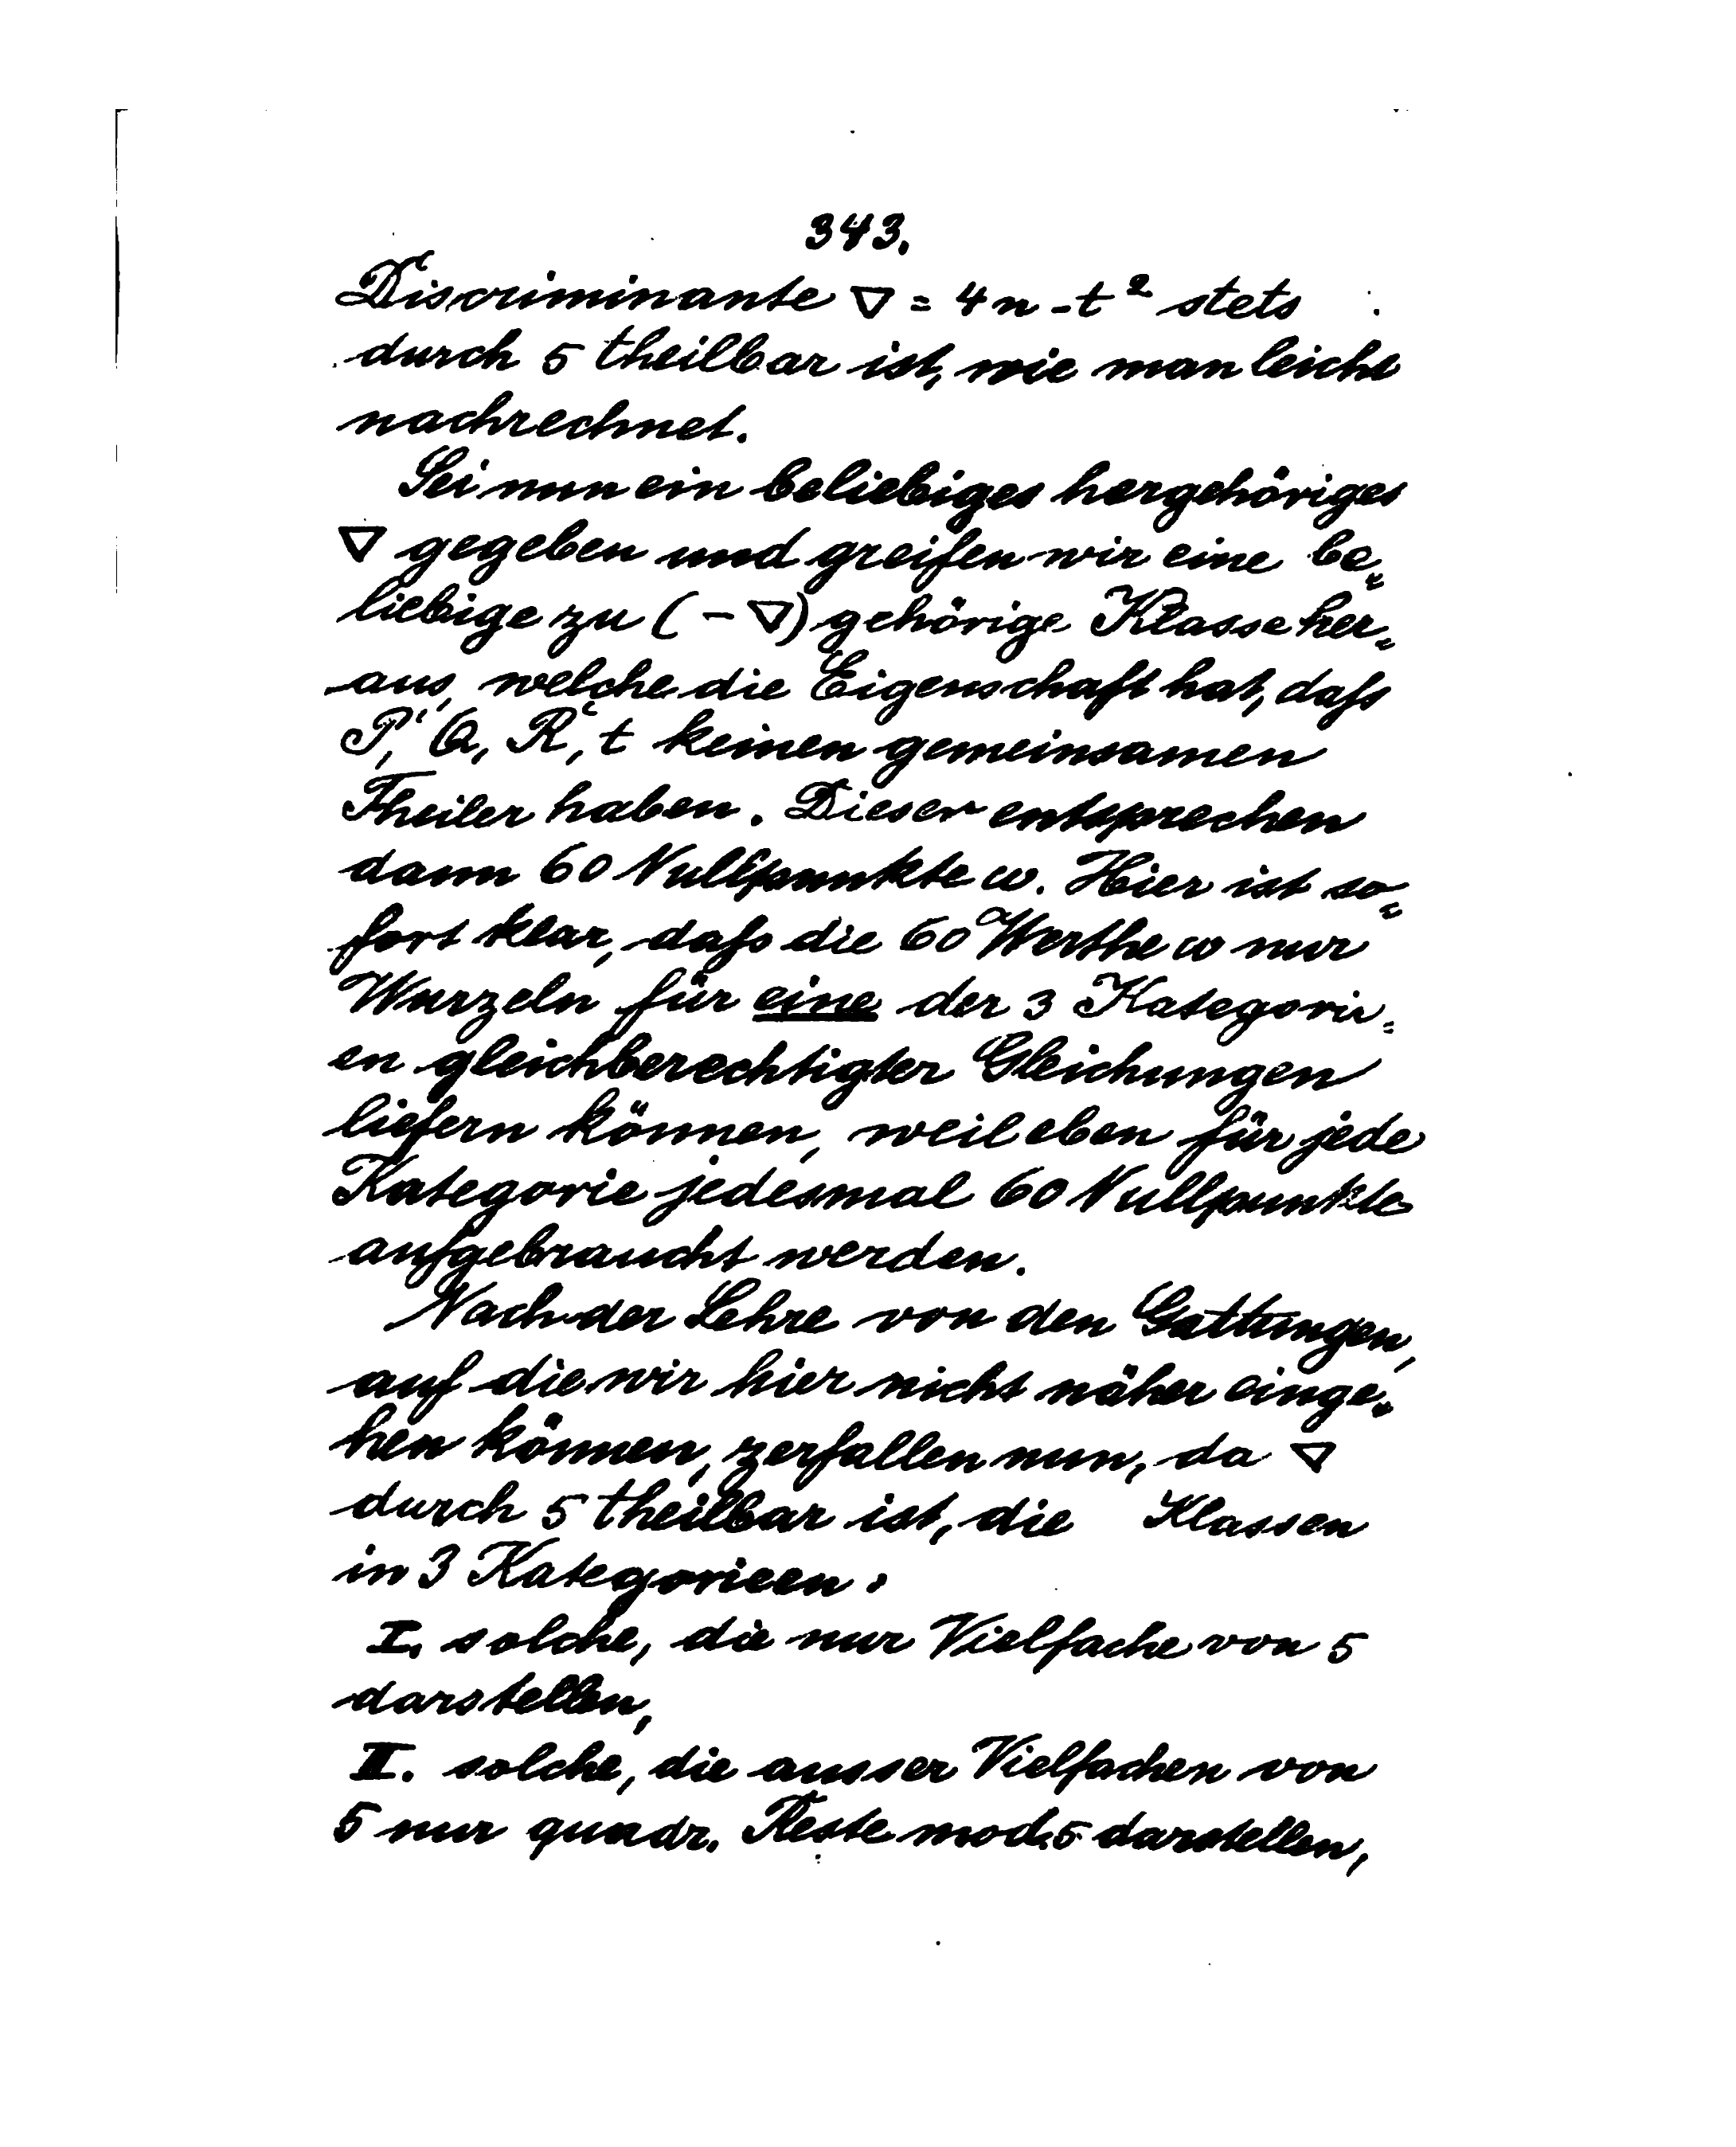 343.
Discriminante ∇ = 4n - t² stets
durch 5 theilbar ist, wie man leicht
nachrechnet.
Sei nun ein beliebiges hergehöriges
∇ gegeben und greifen wir eine be„
liebige zu (-∇) gehörige Klasse her„
aus, welche die Eigenschaft hat, dafs
P', Q, R', t keinen gemeinsamen
Theiler haben. Dieser entsprechen
dann 60 Nullpunkte ω. Hier ist so„
fort klar, dafs die 60 Werthe ω nur
Wurzeln für eine der 3 Kategorie„
en gleichberechtigter Gleichungen
liefern können, weil eben für jede
Kategorie jedesmal 60 Nullpunkte
aufgebraucht werden.
Nach der Lehre von den Gattungen,
auf die wir hier nicht näher einge„
hen können, zerfallen nun, da ∇
durch 5 theilbar ist, die Klassen
in 3 Kategorieen.
I. solche, die nur Vielfache von 5
darstellen,
II. solche, die ausser Vielfachen von
5 nur quadr. Reste mod. 5 darstellen,